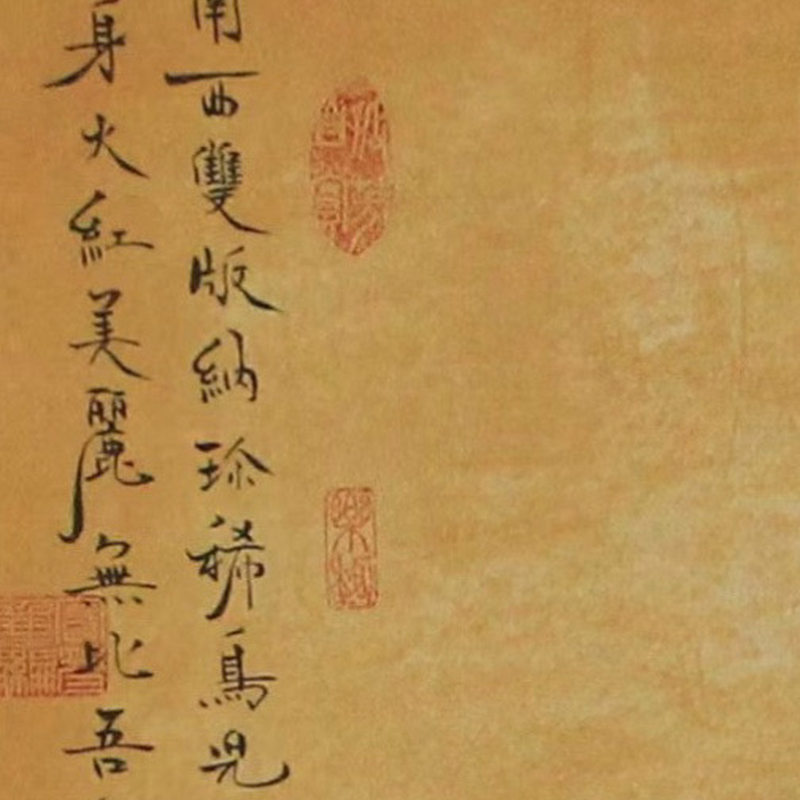 南西雙版納珍稀鳥兒
身火紅美麗無比吾